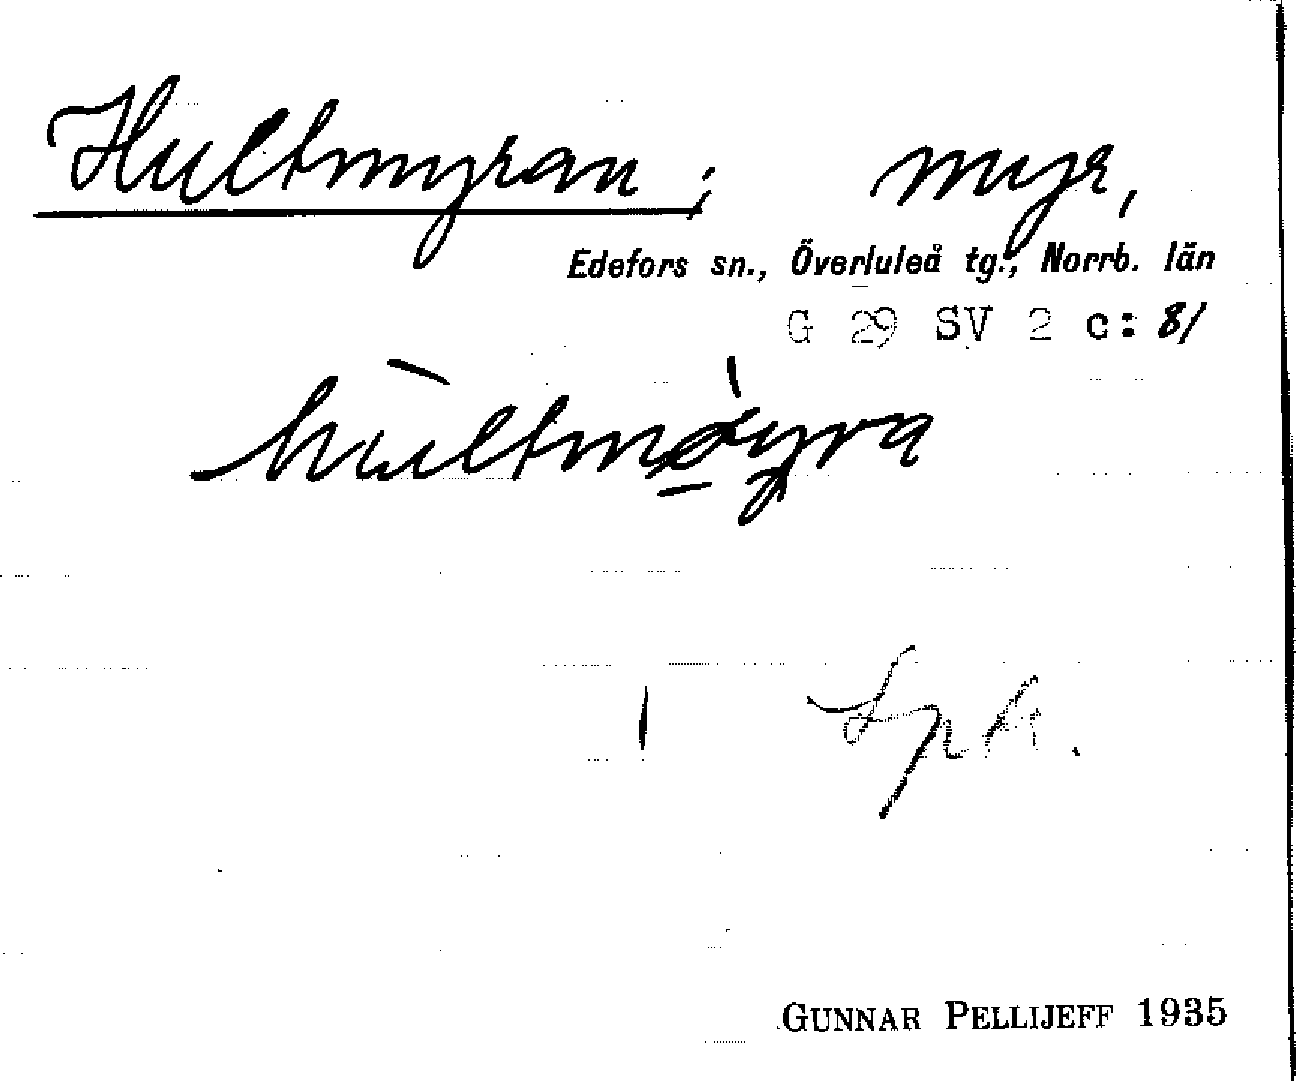 Hultmyran; myr,
Edefors sn., Överluleå tg., Norrb. län
G 29 SV 2 c: 81
hùltmøyra
Spk.
GUNNAR PELLIJEFF 1935